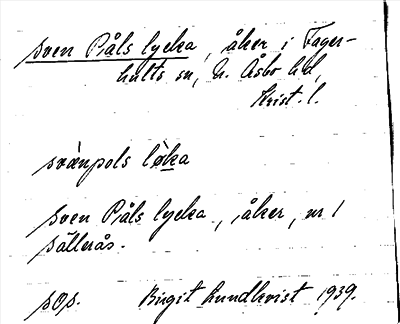 Sven Påls lycka, åker i Fager-
hults sn, N. Åsbo hd,
Krist. l.
svänpols lỳka
Sven Påls lycka, åker, nr 1
Sällerås.
sOs. Birgit Lundkvist 1939.